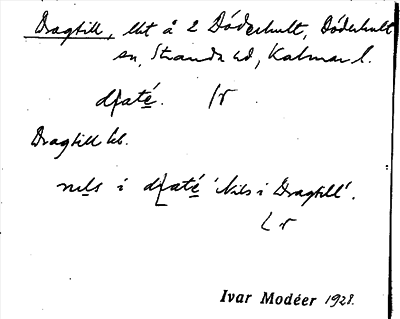 Dragtill, lht å 2 Döderhult, Döderhult
sn, Stranda hd, Kalmar l.
Dragtill lht.
nils i 'Nils i Dragtill'.
Ivar Modéer 1928.